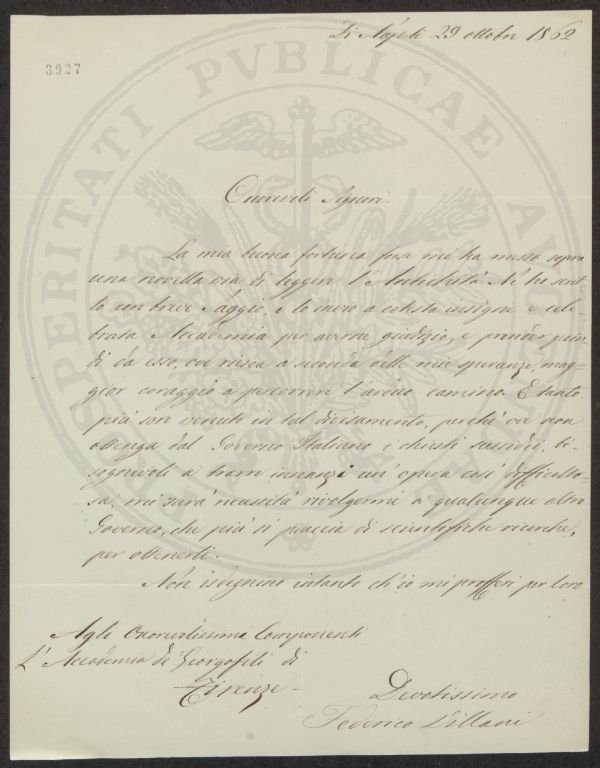 Di Napoli 29 ottobre 1862
3927
PROSPERITATI PVBLICAE AVGENDAE
Onorevoli Signori.
La mia buona fortuna forse mi ha messo sopra
una novella via di leggere l'Antichità. N'ho scrit-
to un breve saggio, e lo invio a cotesta insigne e cele-
brata Accademia per averne giudizio, e prender quin-
di da esso, ove riesca a seconda delle mie speranze, mag-
gior coraggio a percorrere l'arduo camino. E tanto
più son venuto in tal divisamento, perchè ove non
ottenga dal Governo Italiano i chiesti sussidii, bi-
sognevoli a trarre innanzi un'opera così difficolto-
sa, mi sarà necessità rivolgermi a qualunque altro
Governo, che più si piaccia di scientifiche ricerche,
per ottenerli.
Non isdegnino intanto ch'io mi profferi per loro
Agli Onorevolissimi Componenti
L'Accademia de' Georgofili di
Firenze
Devotissimo
Federico Villani